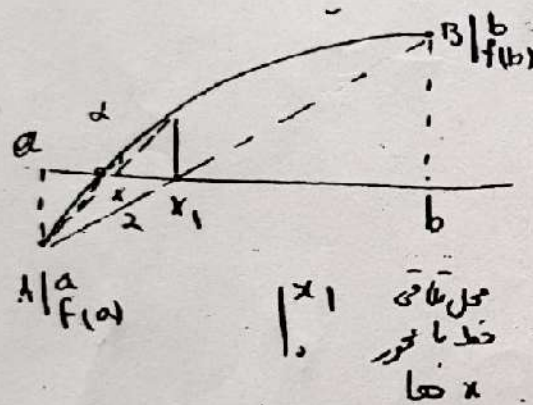 B | b
f(b)
α
a
x
2
x₁
b
A | a
f(a)
| x₁
۰
محل تلاقی
خط با محور
x ها